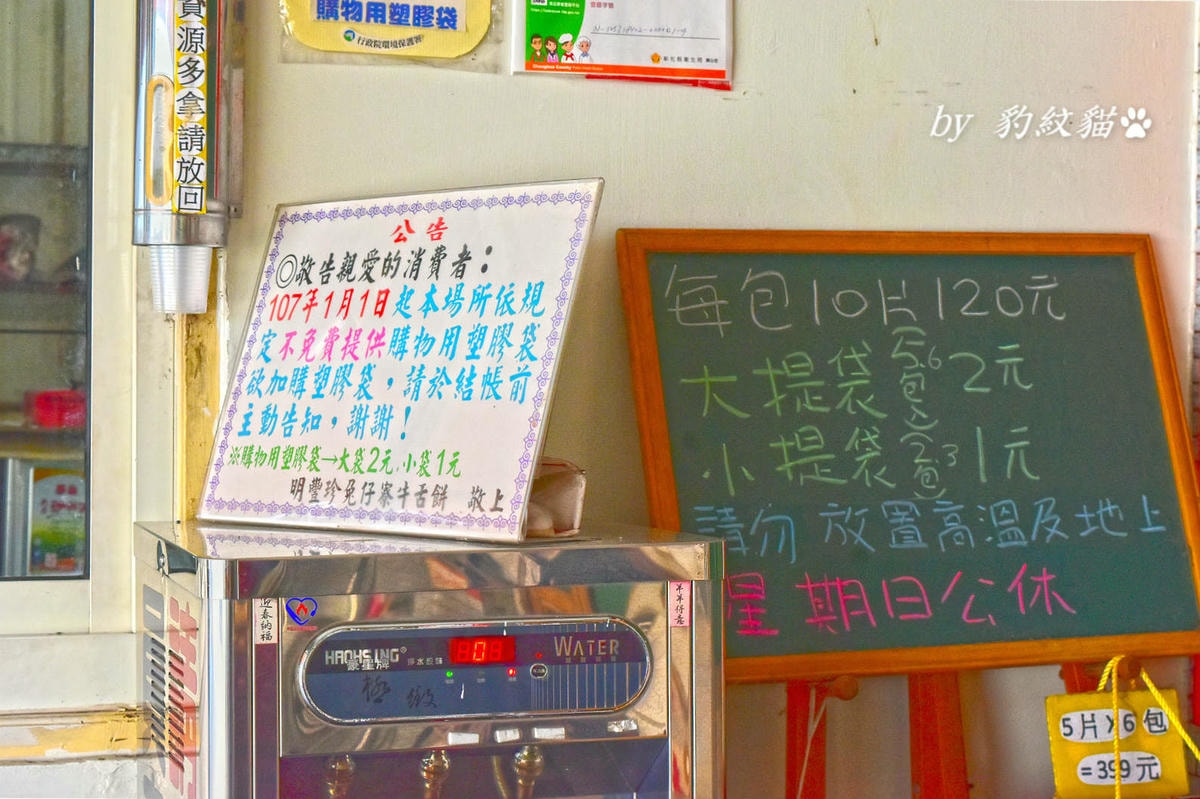 資源多拿請放回
購物用塑膠袋
行政院環境保護署
by 豹紋貓
公告
◎敬告親愛的消費者：
107年1月1日起本場所依規
定不免費提供購物用塑膠袋
欲加購塑膠袋，請於結帳前
主動告知，謝謝！
※購物用塑膠袋→大袋2元.小袋1元
明豐珍兔仔寮牛舌餅 敬上
每包10片120元
大提袋(5.6包入)2元
小提袋(2.3包)1元
請勿放置高溫及地上
星期日公休
迎春納福
HAOHSING®
豪星牌
808
WATER
極緻
5片X6包
=399元